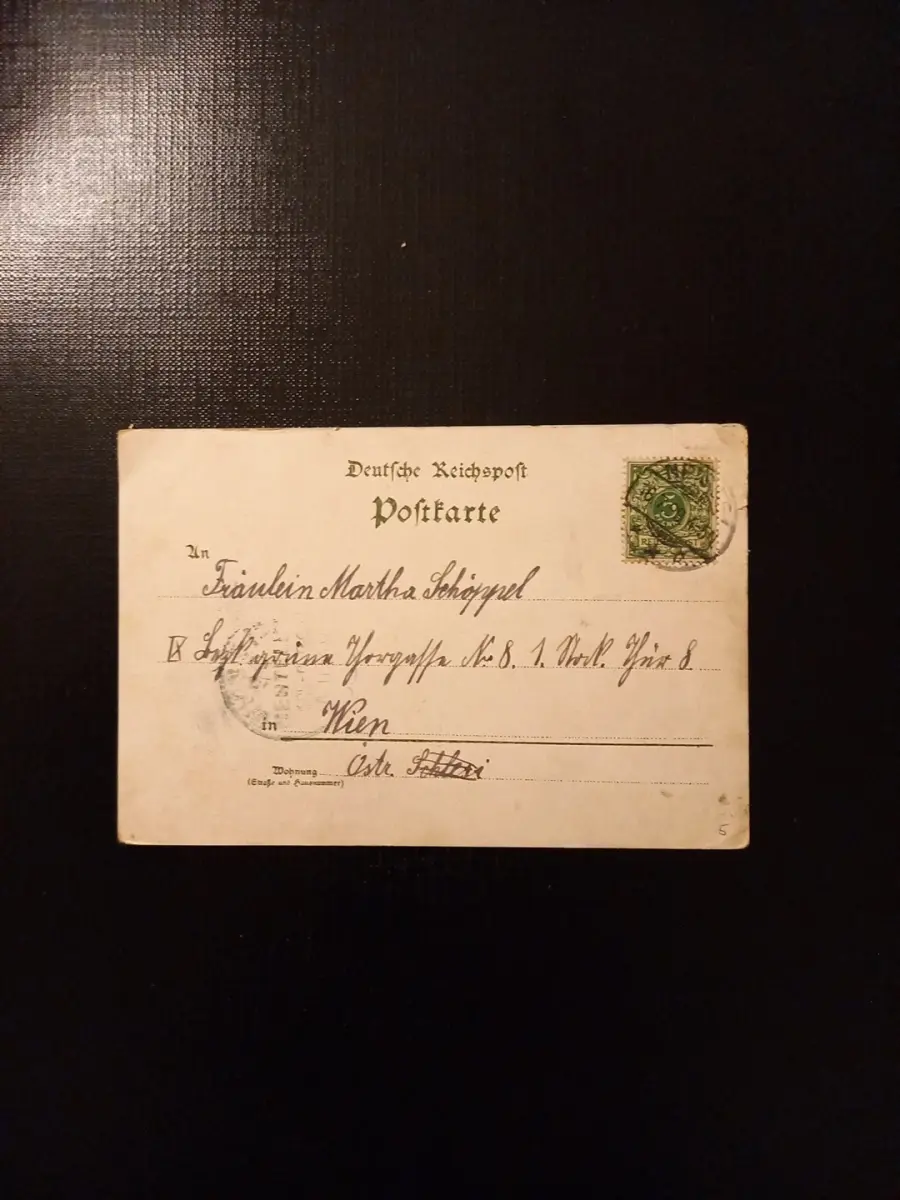 Deutsche Reichspost
Postkarte
An
Fräulein Martha Schöppel
IX Bezk. grüne Thorgasse No 8. 1. Stock. Thür 8
in Wien
Wohnung Östr.
(Straße und Hausnummer)
5
REICHSPOST
5